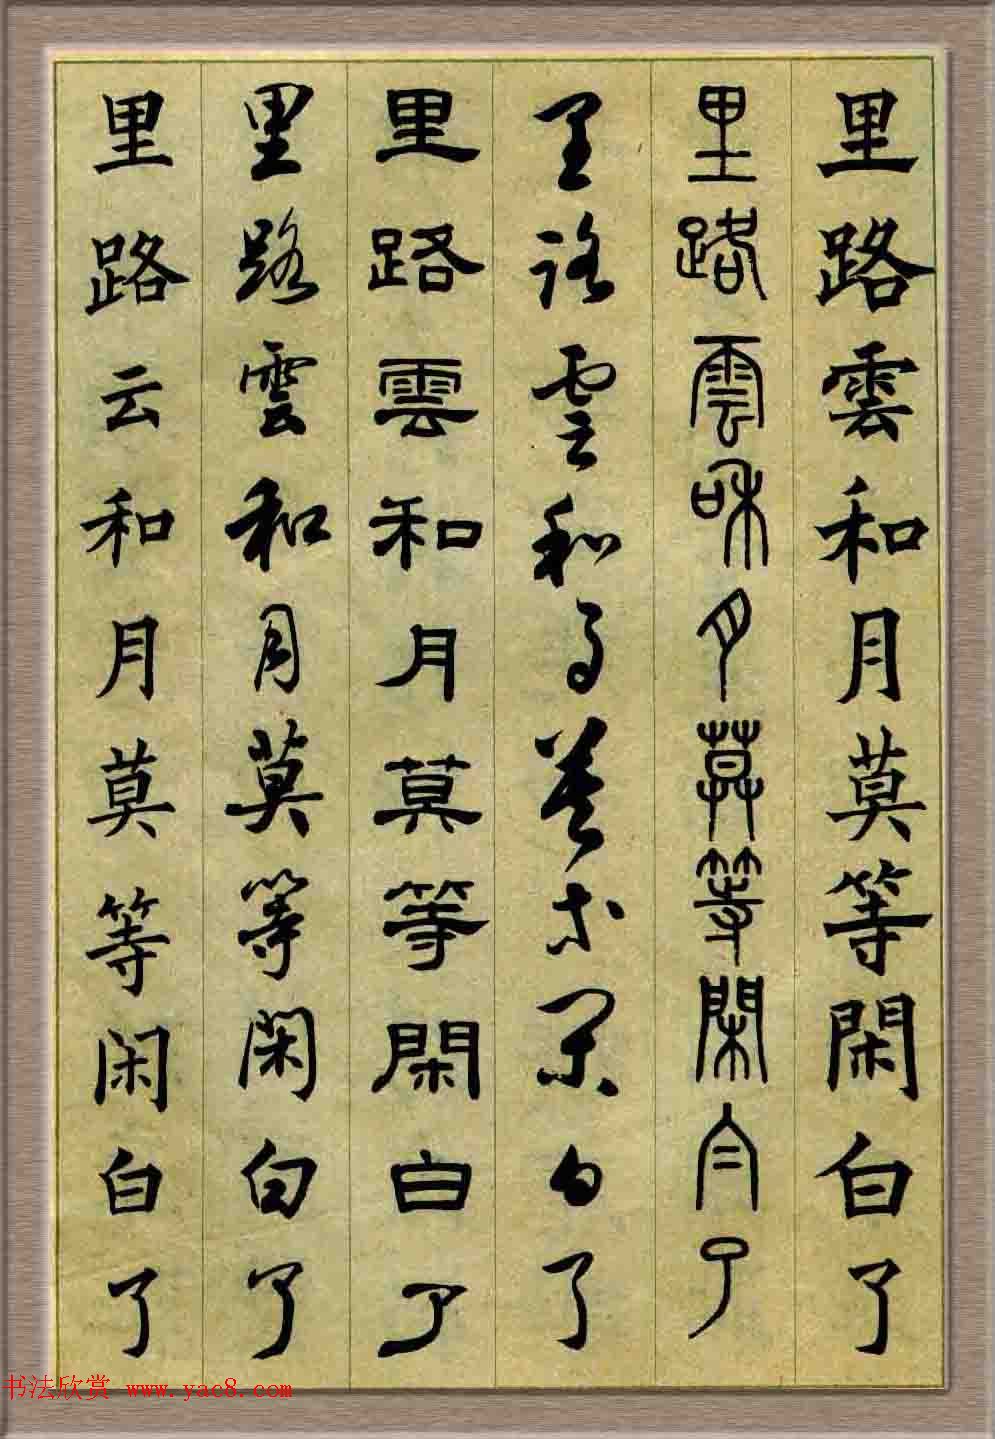 里路雲和月莫等閑白了
里路雲和月莫等閑白了
里路雲和月莫等閑白了
里路雲和月莫等閑白了
里路雲和月莫等閑白了
里路云和月莫等闲白了
书法欣赏 www.yac8.com